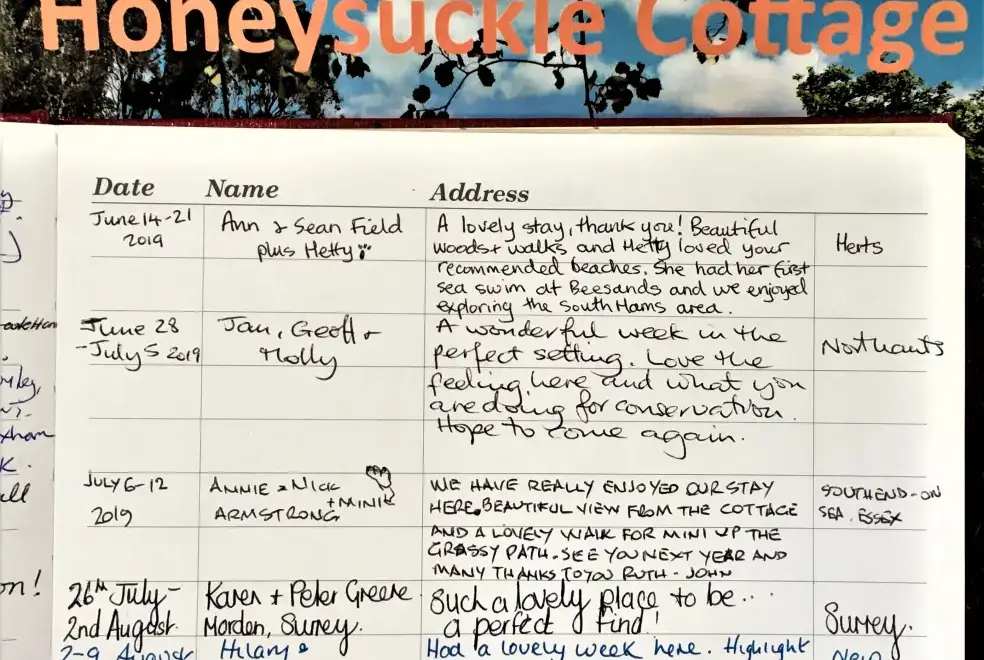 Honeysuckle Cottage
Date Name Address
June 14-21
2019
Ann & Sean Field
plus Hetty
A lovely stay, thank you! Beautiful
woods + walks and Hetty loved your
recommended beaches. She had her first
sea swim at Beesands and we enjoyed
exploring the South Hams area.
Herts
June 28
-July 5 2019
Jan, Geoff +
Molly
A wonderful week in the
perfect setting. Love the
feeling here and what you
are doing for conservation.
Hope to come again.
Northants
JULY 6-12
2019
ANNIE & NICK
+ MINI
ARMSTRONG
WE HAVE REALLY ENJOYED OUR STAY
HERE. BEAUTIFUL VIEW FROM THE COTTAGE
AND A LOVELY WALK FOR MINI UP THE
GRASSY PATH. SEE YOU NEXT YEAR AND
MANY THANKS TO YOU RUTH - JOHN
SOUTHEND-ON
SEA. ESSEX
26th July -
2nd August.
Karen + Peter Greene
Morden, Surrey.
Such a lovely place to be...
a perfect find!
Surrey.
2-9 August
Hilary &
Had a lovely week here. Highlight